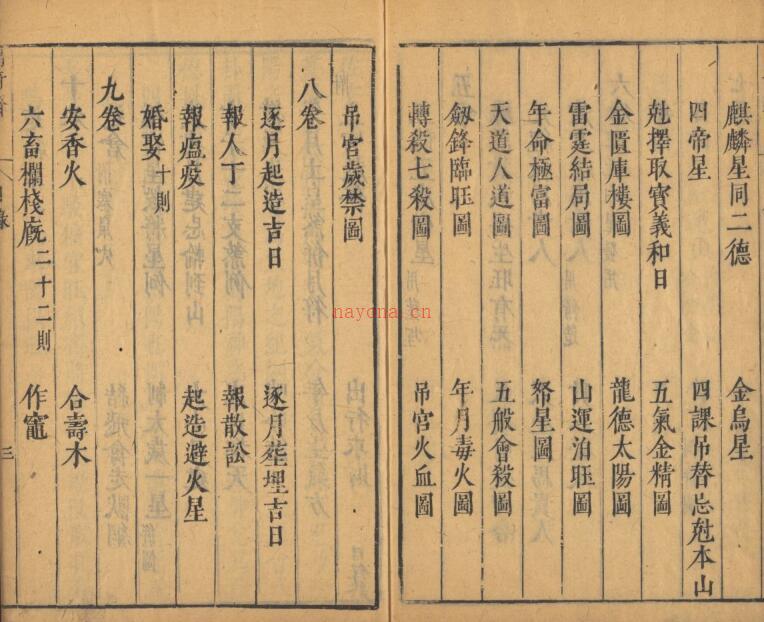 麒麟星同二德　金烏星
四帝星　四課吊替忌尅本山
尅擇取寳義和日　五氣金精圖
金匱庫樓圖　龍德太陽圖
雷霆結局圖　山運泊𭥍圖
年命極富圖　帑星圖
天道人道圖　五般會殺圖
劔鋒臨𭥍圖　年月毒火圖
轉殺七殺圖　吊宮火血圖
吊宮歲禁圖
八卷
逐月起造吉日　逐月塟埋吉日
報人丁　報散訟
報瘟疫　起造避火星
婚娶十則
九卷
安香火　合壽木
六畜欄棧廐二十二則　作竈
目錄
三
nayona.cn